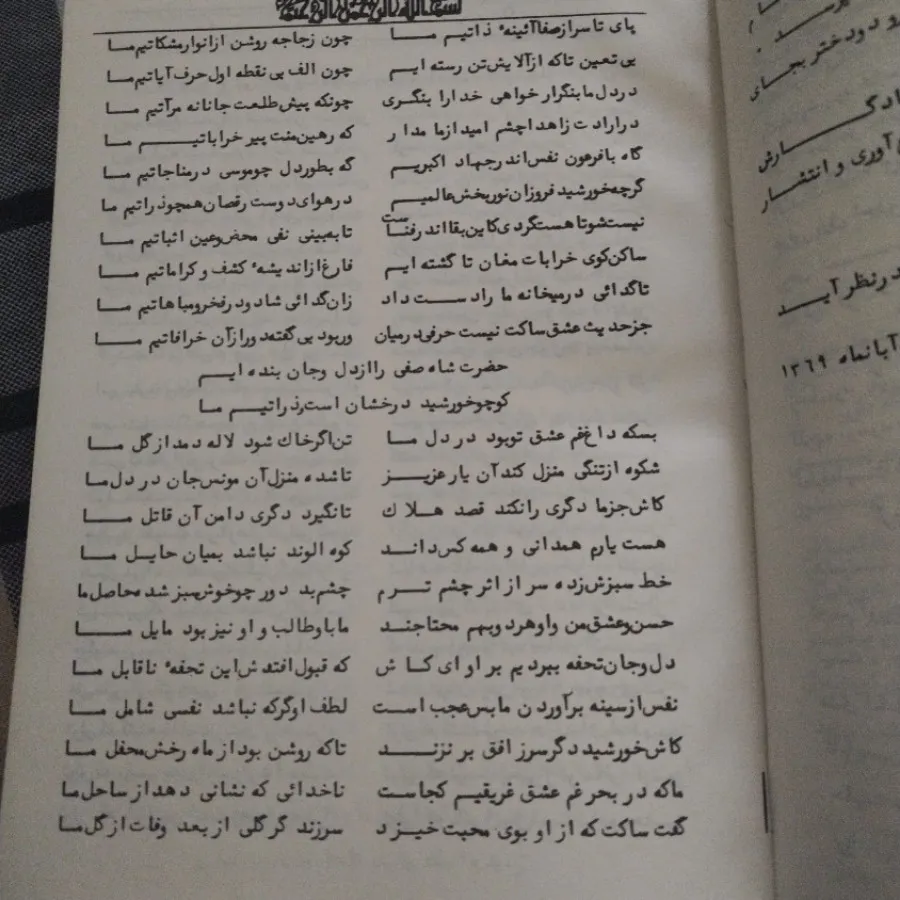 بسم الله الرحمن الرحیم
پای تا سر از صفا آئینهٔ ذاتیم ما چون زجاجه روشن از انوار مشکاتیم ما
بی تعین تا که از آلایش تن رسته ایم چون الف بی نقطه اول حرف آیاتیم ما
در دل ما بنگر ار خواهی خدا را بنگری چونکه پیش طلعت جانانه مرآتیم ما
در ارادت زاهدا چشم امید از ما مدار که رهین منت پیر خراباتیم ما
گاه با فرعون نفس اندر جهاد اکبریم گه بطور دل چو موسی در مناجاتیم ما
گرچه خورشید فروزان نور بخش عالمیم در هوای دوست رقصان همچو ذراتیم ما
نیست شو تا هست گردی کاین بقا اندر فناست تا به بینی نفی محض و عین اثباتیم ما
ساکن کوی خرابات مغان تا گشته ایم فارغ از اندیشهٔ کشف و کراماتیم ما
تا گدائی در میخانه ما را دست داد زان گدائی شاد و در فخر و مباهاتیم ما
جز حدیث عشق ساکت نیست حرفی در میان ور بود بی گفته دور از آن خرافاتیم ما
حضرت شاه صفی را از دل و جان بنده ایم
کو چو خورشید درخشان است و ذراتیم ما
بسکه داغ غم عشق تو بود در دل ما تن اگر خاك شود لاله دمد از گل ما
شکوه از تنگی منزل کند آن یار عزیز تا شده منزل آن مونس جان در دل ما
کاش جز ما دگری را نکند قصد هلاك تا نگیرد دگری دامن آن قاتل ما
هست یارم همدانی و همه کس داند کوه الوند نباشد بمیان حایل ما
خط سبزش زده سر از اثر چشم ترم چشم بد دور چو خوش سبز شده حاصل ما
حسن و عشق من و او هر دو بهم محتاجند ما باو طالب و او نیز بود مایل ما
دل و جان تحفه ببردیم بر او ای کاش که قبول افتدش این تحفهٔ ناقابل ما
نفس از سینه برآوردن ما بس عجب است لطف او گر که نباشد نفسی شامل ما
کاش خورشید دگر سر ز افق بر نزند تا که روشن بود از ماه رخش محفل ما
ما که در بحر غم عشق غریقیم کجاست ناخدائی که نشانی دهد از ساحل ما
گفت ساکت که از او بوی محبت خیزد سرزند گر گلی از بعد وفات از گل ما
و دو دختر بجای
آوری و انتشار
در نظر آید
آبانماه ۱۳۶۹